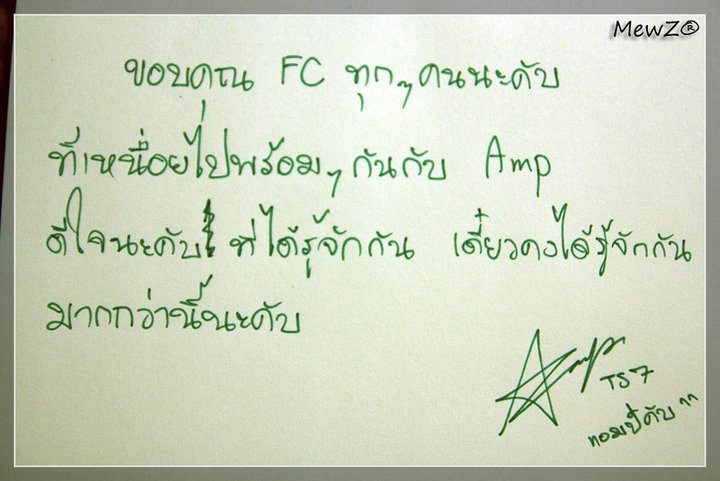 MewZ®
ขอบคุณ FC ทุกๆคนนะคับ
ที่เหนื่อยไปพร้อมๆกันกับ Amp
ดีใจนะคับ ที่ได้รู้จักกัน เดี๋ยวคงได้รู้จักกัน
มากกว่านี้นะคับ
Amp
TS7
ทอมปี้คับ^^